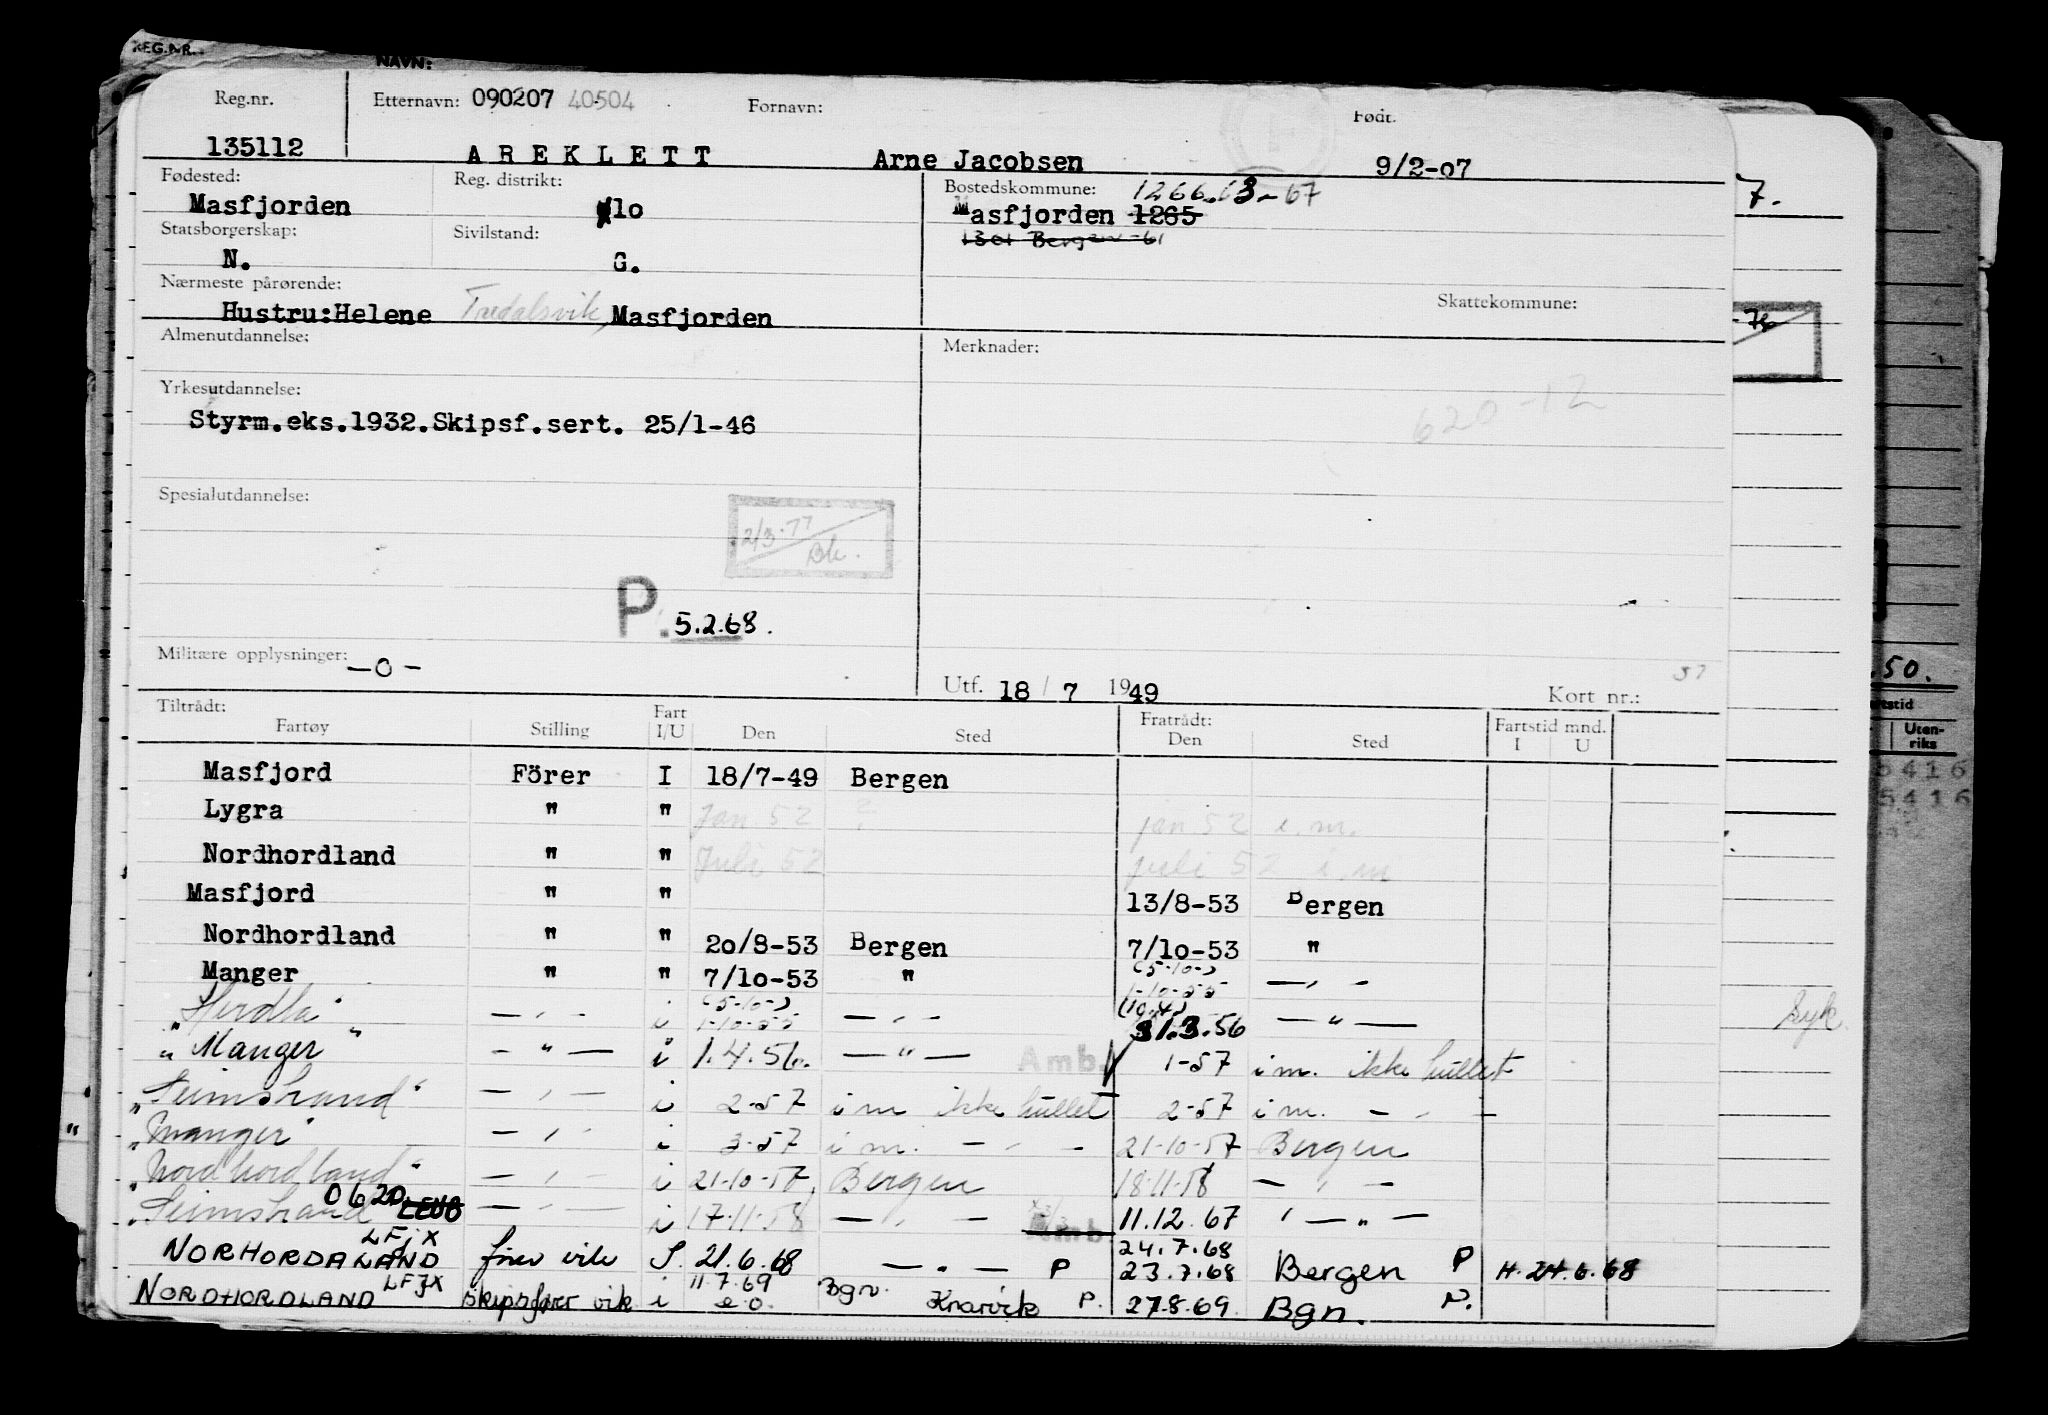 REG.NR.
NAVN:
Reg.nr. Etternavn: 090207 40504 Fornavn: Født.
135112 AREKLETT Arne Jacobsen 9/2-07
Fødested: Reg. distrikt: Bostedskommune: 1266.63-67
Masfjorden 1o Masfjorden 1265
Statsborgerskap: Sivilstand: 1301 Bergen -61
N. G.
Nærmeste pårørende: Skattekommune:
Hustru:Helene Masfjorden
Almenutdannelse: Merknader:
Yrkesutdannelse: 620-12
Styrm.eks.1932.Skipsf.sert. 25/1-46
Spesialutdannelse:
2/3.77
Bk.
P. 5.2.68.
Militære opplysninger: -0-
Utf. 18/7 1949 Kort nr.:
Tiltrådt: Fratrådt:
Fartøy Stilling Fart I/U Den Sted Den Sted Fartstid mnd. I U
Masfjord Förer I 18/7-49 Bergen
Lygra " " Jan. 52 ? jan. 52 i.m.
Nordhordland " " Juli 52 juli 52 i.m
Masfjord " " 13/8-53 Bergen
Nordhordland " " 20/8-53 Bergen 7/10-53 "
Manger " " 7/10-53 " (5-10-) 1-10-55 - " -
"Herdla" - " - i (5-10-) 1-10-55 - " - (10.4) 31.3.56 - " -
"Manger" - " - i 1.4.56. - " - Amb. 1-57 i m. ikke hullet
"Seimstrand" - " - i 2-57 i m ikke hullet 2-57 i m. - " -
"Manger" - " - i 3-57 i m. - " - 21-10-57 Bergen
"Nordhordland" - " - i 21-10-57. Bergen 18.11.58 - " -
"Seimstrand" 0620 LEUB - " - i 17-11-58 - " - Amb. 11.12.67 - " -
NORHORDALAND LFJX fører vik S. 21.6.68 - " - P 24.7.68 23.7.68 Bergen P H. 24.6.68
NORDHORDLAND LFJX skipsfører vik i 11.7.69 e.o. Bgn. Knarvik P. 27.8.69 Bgn. P.
7.
-76
50.
Uten-
riks
5416
5416
Syk.